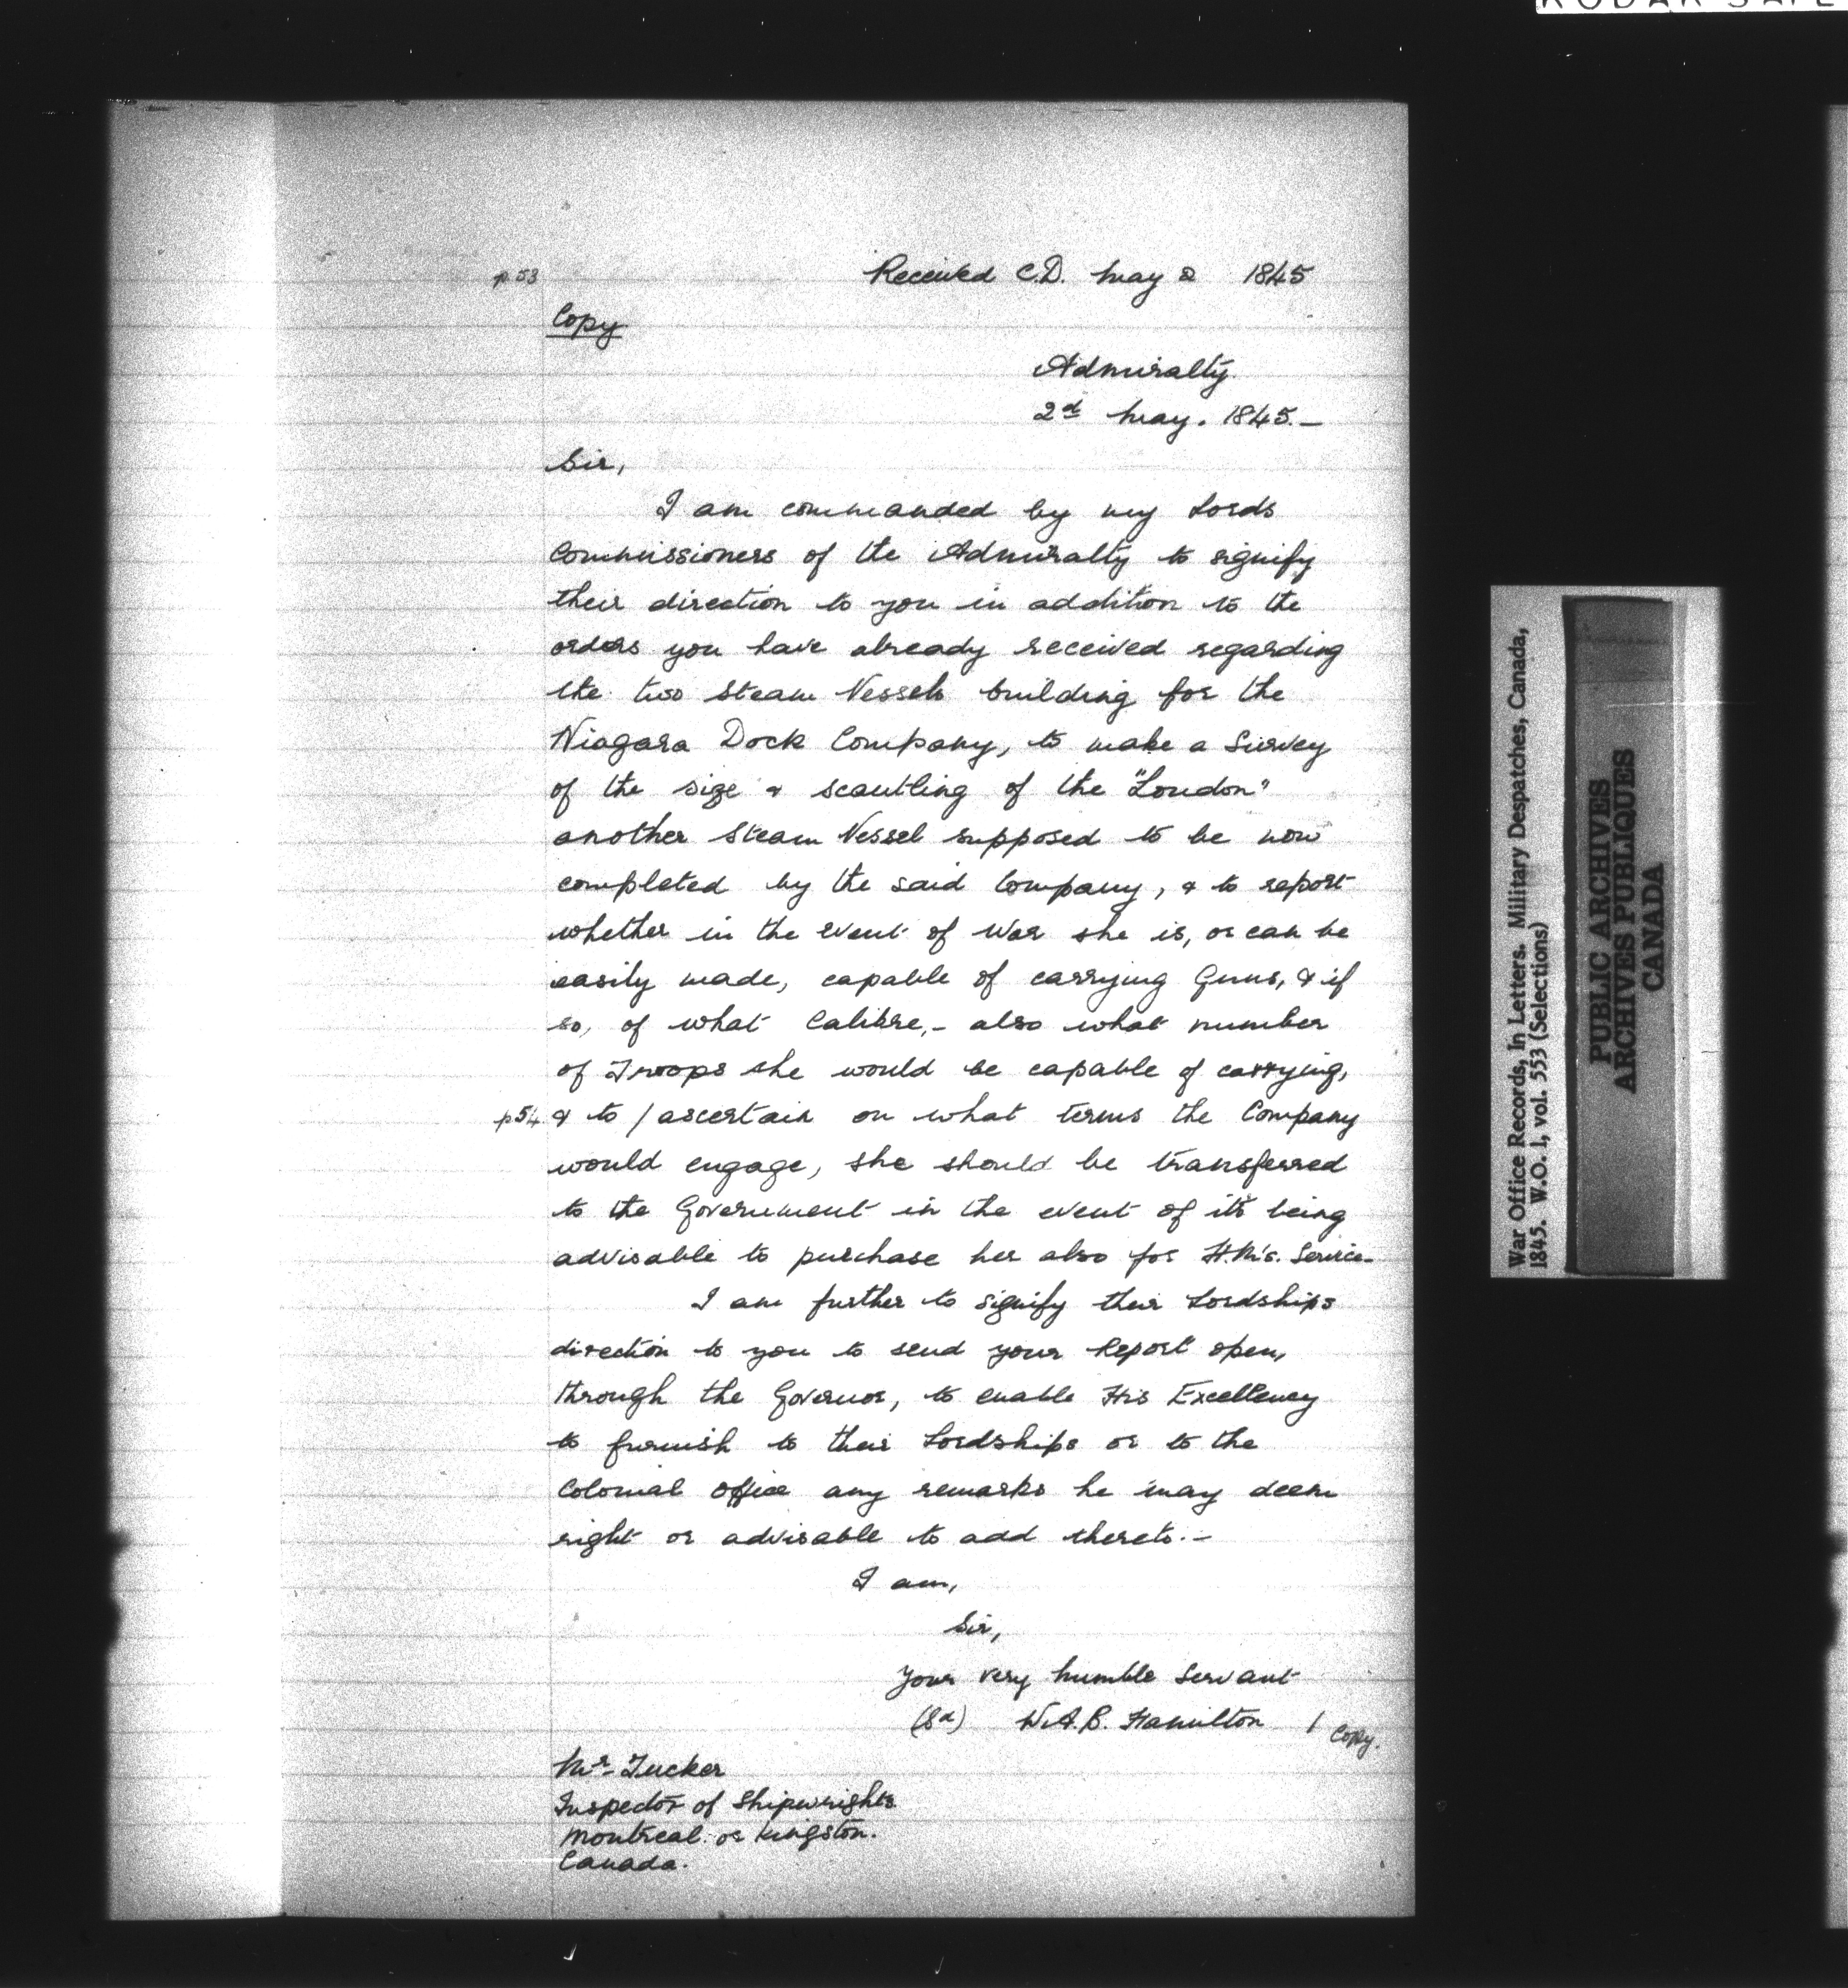 p.53
Received C.D. May 2 1845
Copy
Admiralty.
2d May. 1845.–
Sir,
I am commanded by my Lords
Commissioners of the Admiralty to signify
their direction to you in addition to the
orders you have already received regarding
the two Steam Vessels building for the
Niagara Dock Company, to make a Survey
of the size & scantling of the "London"
another Steam Vessel supposed to be now
completed by the said Company, & to report
whether in the event of War she is, or can be
easily made, capable of carrying Guns, & if
so, of what Calibre,– also what number
of Troops she would be capable of carrying,
p54 & to / ascertain on what terms the Company
would engage, she should be transferred
to the Government in the event of its being
advisable to purchase her also for H.M's. Service–
I am further to signify their Lordships
direction to you to send your Report open,
through the Governor, to enable His Excellency
to furnish to their Lordships or to the
Colonial Office any remarks he may deem
right or advisable to add thereto.–
I am,
Sir,
Your very humble Servant
(Sd) W.A.B. Hamilton / Copy.
Mr. Tucker
Inspector of Shipwrights
Montreal or Kingston.
Canada.
War Office Records, In Letters. Military Despatches, Canada,
1845. W.O. 1, vol. 553 (Selections)
PUBLIC ARCHIVES
ARCHIVES PUBLIQUES
CANADA